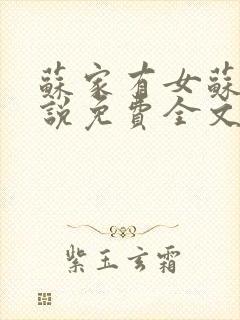 蘇家有女蘇
說免費全文
紫玉玄霜